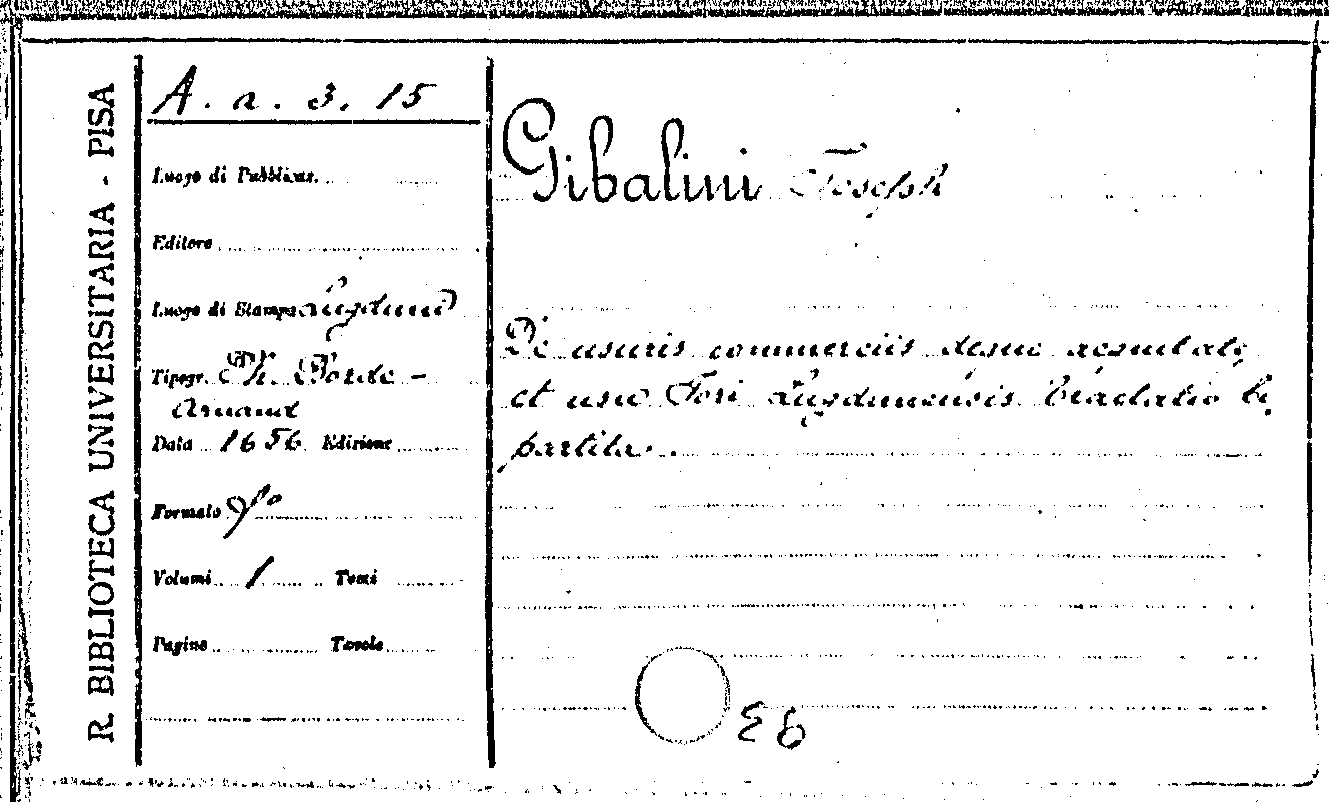 R. BIBLIOTECA UNIVERSITARIA - PISA
A. a. 3. 15
Luogo di Pubblicaz.
Editore
Luogo di Stampa Lugduni
Tipogr. Ph. Borde -
Arnaud
Data 1656 Edizione
Formato fo
Volumi 1 Tomi
Pagine Tavole
Gibalini Joseph
De usuris commerciis deque aequitate
et usu Fori Lugdunensis tractatio bi
partita.
E6